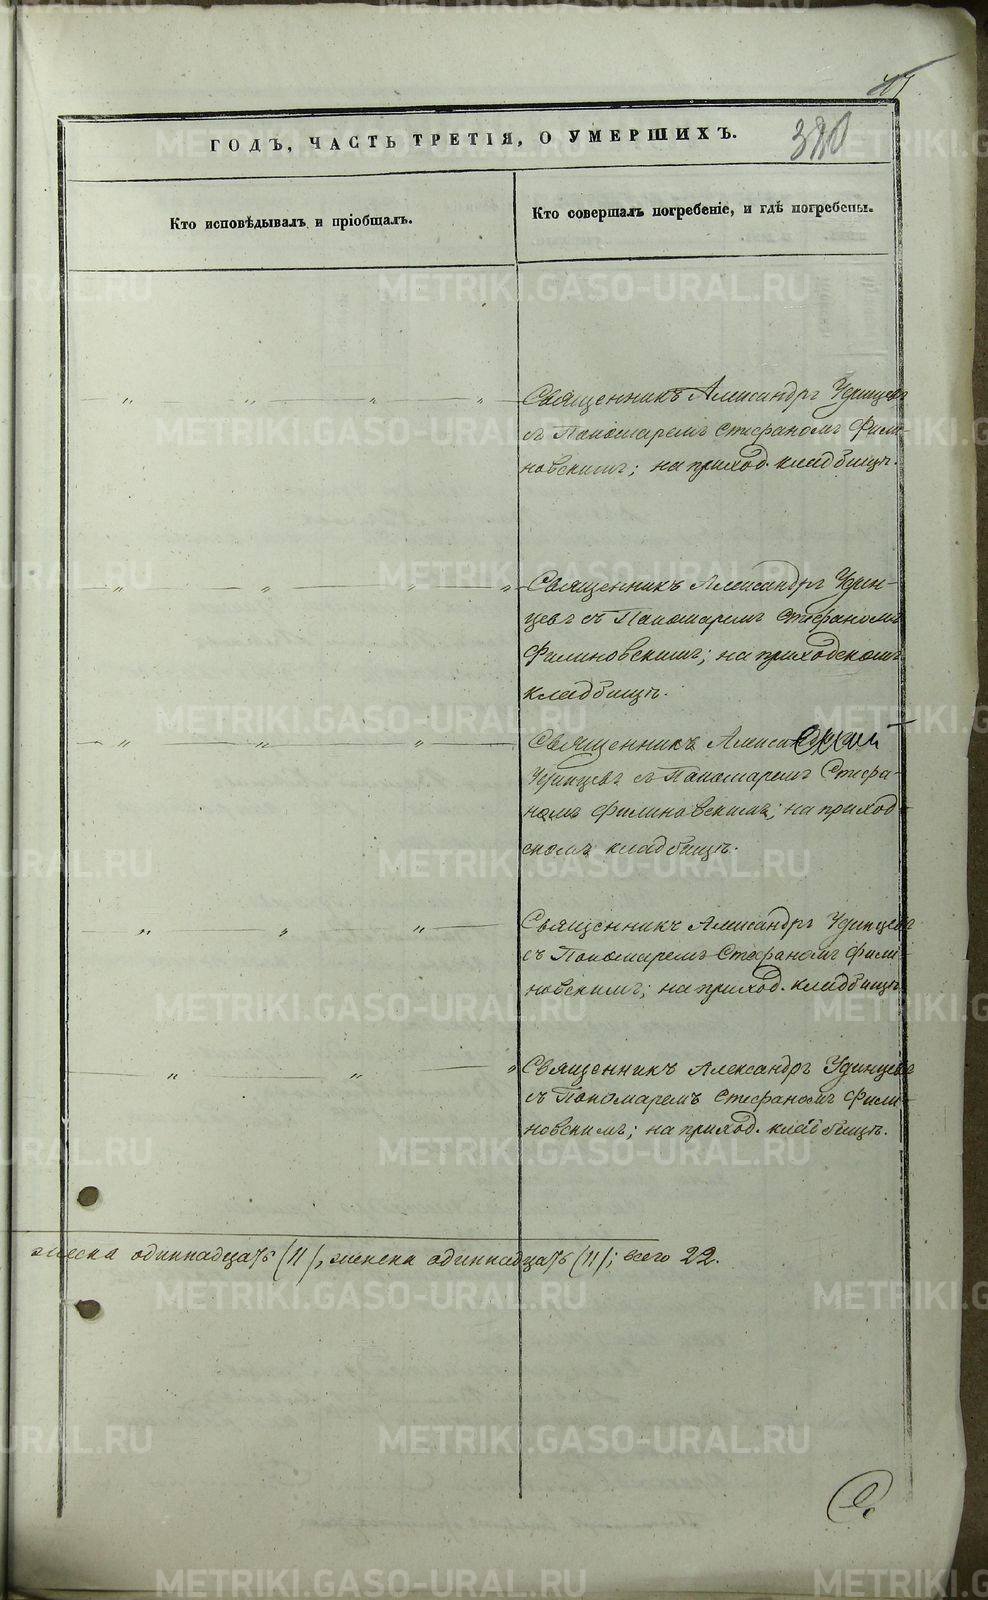 ГОДЪ, ЧАСТЬ ТРЕТІЯ, О УМЕРШИХЪ.
380
Кто исповѣдывалъ и пріобщалъ.
Кто совершалъ погребеніе, и гдѣ погребены.
Священникъ Александръ Удинцевъ
съ Пономаремъ Стефаномъ Фили-
новскимъ; на приход. кладбищѣ.
Священникъ Александръ Удин-
цевъ съ Пономаремъ Стефаномъ
Филиновскимъ; на приходскомъ
кладбищѣ.
Священникъ
Удинцевъ съ Пономаремъ Стефа-
номъ Филиновскимъ; на приход-
скомъ кладбищѣ.
Священникъ Александръ Удинцевъ
съ Пономаремъ Стефаномъ Фили-
новскимъ; на приход. кладбищѣ.
Священникъ Александръ Удинцевъ
съ Пономаремъ Стефаномъ Фили-
новскимъ; на приход. кладбищѣ.
одиннадцать (11), женска одиннадцать (11); всего 22.
METRIKI.GASO-URAL.RU